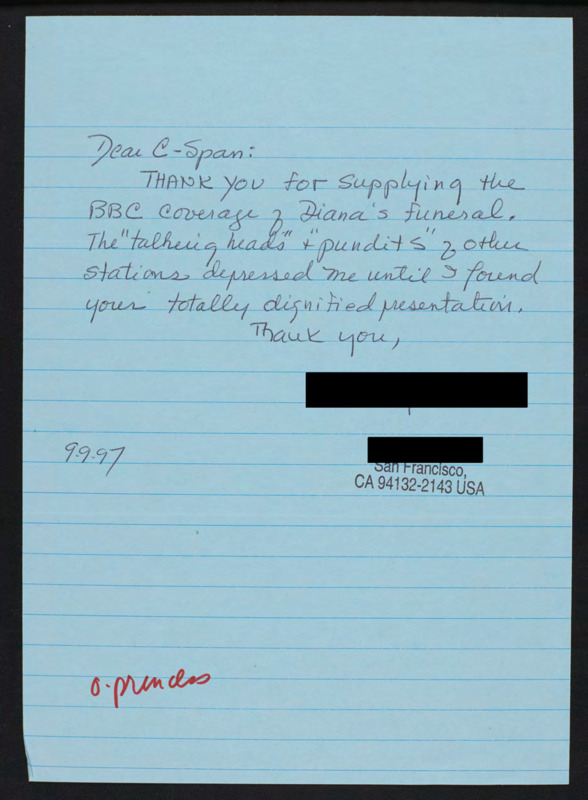 Dear C-Span:
THANK YOU for supplying the
BBC coverage of Diana's funeral.
The "talking heads" + "pundits" of other
stations depressed me until I found
your totally dignified presentation.
Thank you,
9.9.97
San Francisco,
CA 94132-2143 USA